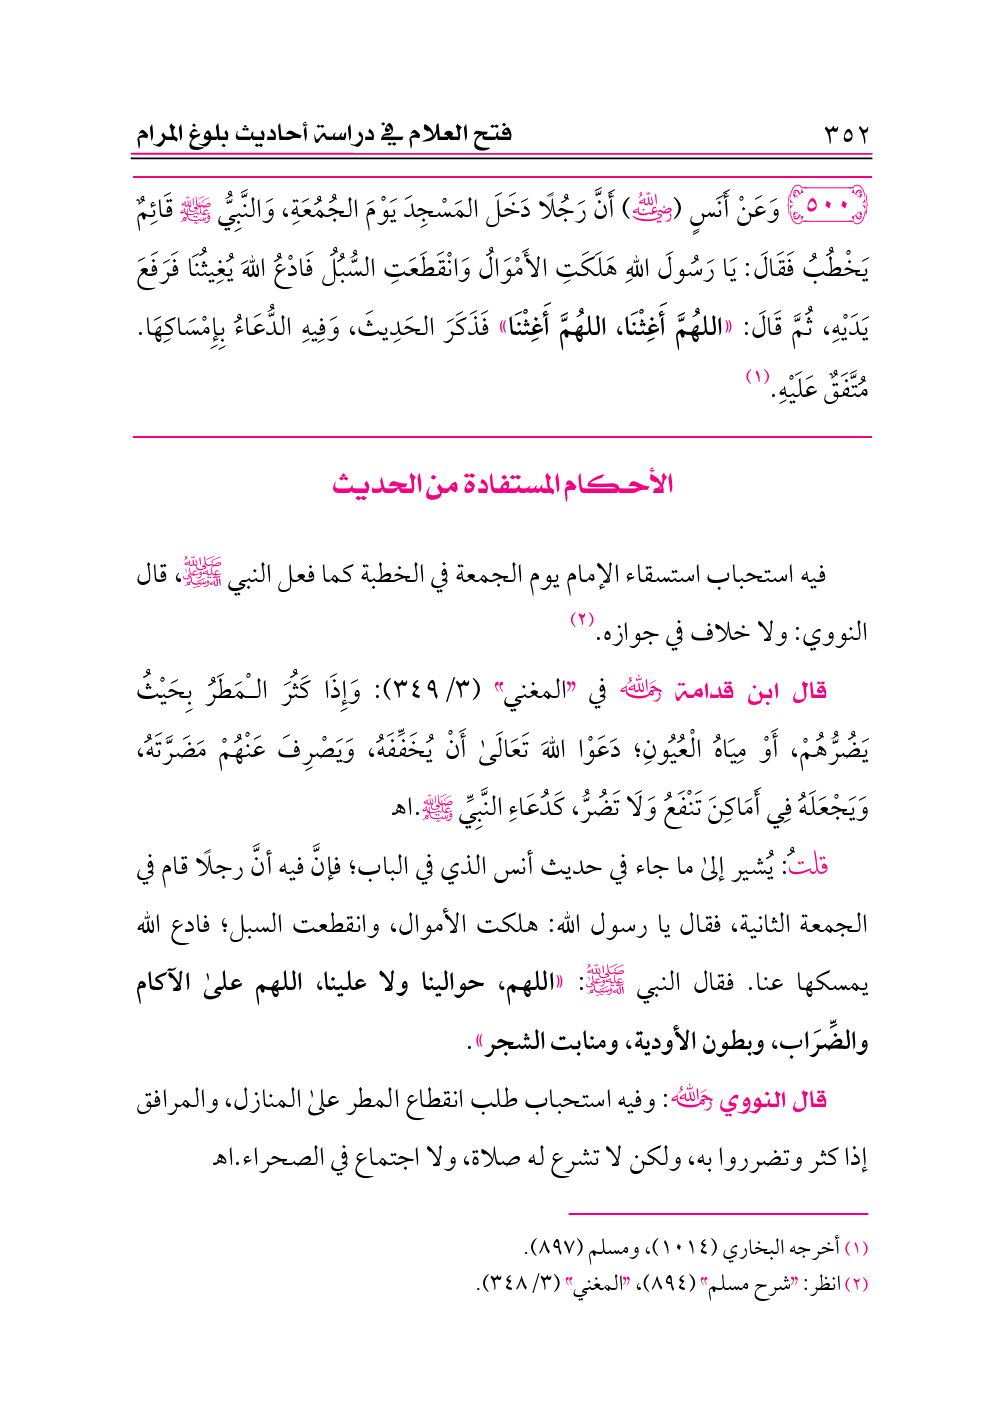 ٣٥٢ فتح العلام في دراسة أحاديث بلوغ المرام
٥٠٠ وَعَنْ أَنَسٍ (رضي الله عنه) أَنَّ رَجُلًا دَخَلَ المَسْجِدَ يَوْمَ الجُمُعَةِ، وَالنَّبِيُّ ﷺ قَائِمٌ
يَخْطُبُ فَقَالَ: يَا رَسُولَ اللهِ هَلَكَتِ الأَمْوَالُ وَانْقَطَعَتِ السُّبُلُ فَادْعُ اللهَ يُغِيثُنَا فَرَفَعَ
يَدَيْهِ، ثُمَّ قَالَ: «اللهُمَّ أَغِثْنَا، اللهُمَّ أَغِثْنَا» فَذَكَرَ الحَدِيثَ، وَفِيهِ الدُّعَاءُ بِإِمْسَاكِهَا.
مُتَّفَقٌ عَلَيْهِ.(١)
الأحكام المستفادة من الحديث
فيه استحباب استسقاء الإمام يوم الجمعة في الخطبة كما فعل النبي ﷺ، قال
النووي: ولا خلاف في جوازه.(٢)
قال ابن قدامة رحمه الله في "المغني" (٣/ ٣٤٩): وَإِذَا كَثُرَ الْمَطَرُ بِحَيْثُ
يَضُرُّهُمْ، أَوْ مِيَاهُ الْعُيُونِ؛ دَعَوْا اللهَ تَعَالَىٰ أَنْ يُخَفِّفَهُ، وَيَصْرِفَ عَنْهُمْ مَضَرَّتَهُ،
وَيَجْعَلَهُ فِي أَمَاكِنَ تَنْفَعُ وَلَا تَضُرُّ، كَدُعَاءِ النَّبِيِّ ﷺ.اهـ
قلتُ: يُشير إلىٰ ما جاء في حديث أنس الذي في الباب؛ فإنَّ فيه أنَّ رجلًا قام في
الجمعة الثانية، فقال يا رسول الله: هلكت الأموال، وانقطعت السبل؛ فادع الله
يمسكها عنا. فقال النبي ﷺ: «اللهم، حوالينا ولا علينا، اللهم علىٰ الآكام
والضِّرَاب، وبطون الأودية، ومنابت الشجر».
قال النووي رحمه الله: وفيه استحباب طلب انقطاع المطر علىٰ المنازل، والمرافق
إذا كثر وتضرروا به، ولكن لا تشرع له صلاة، ولا اجتماع في الصحراء.اهـ
(١) أخرجه البخاري (١٠١٤)، ومسلم (٨٩٧).
(٢) انظر: "شرح مسلم" (٨٩٤)، "المغني" (٣/ ٣٤٨).